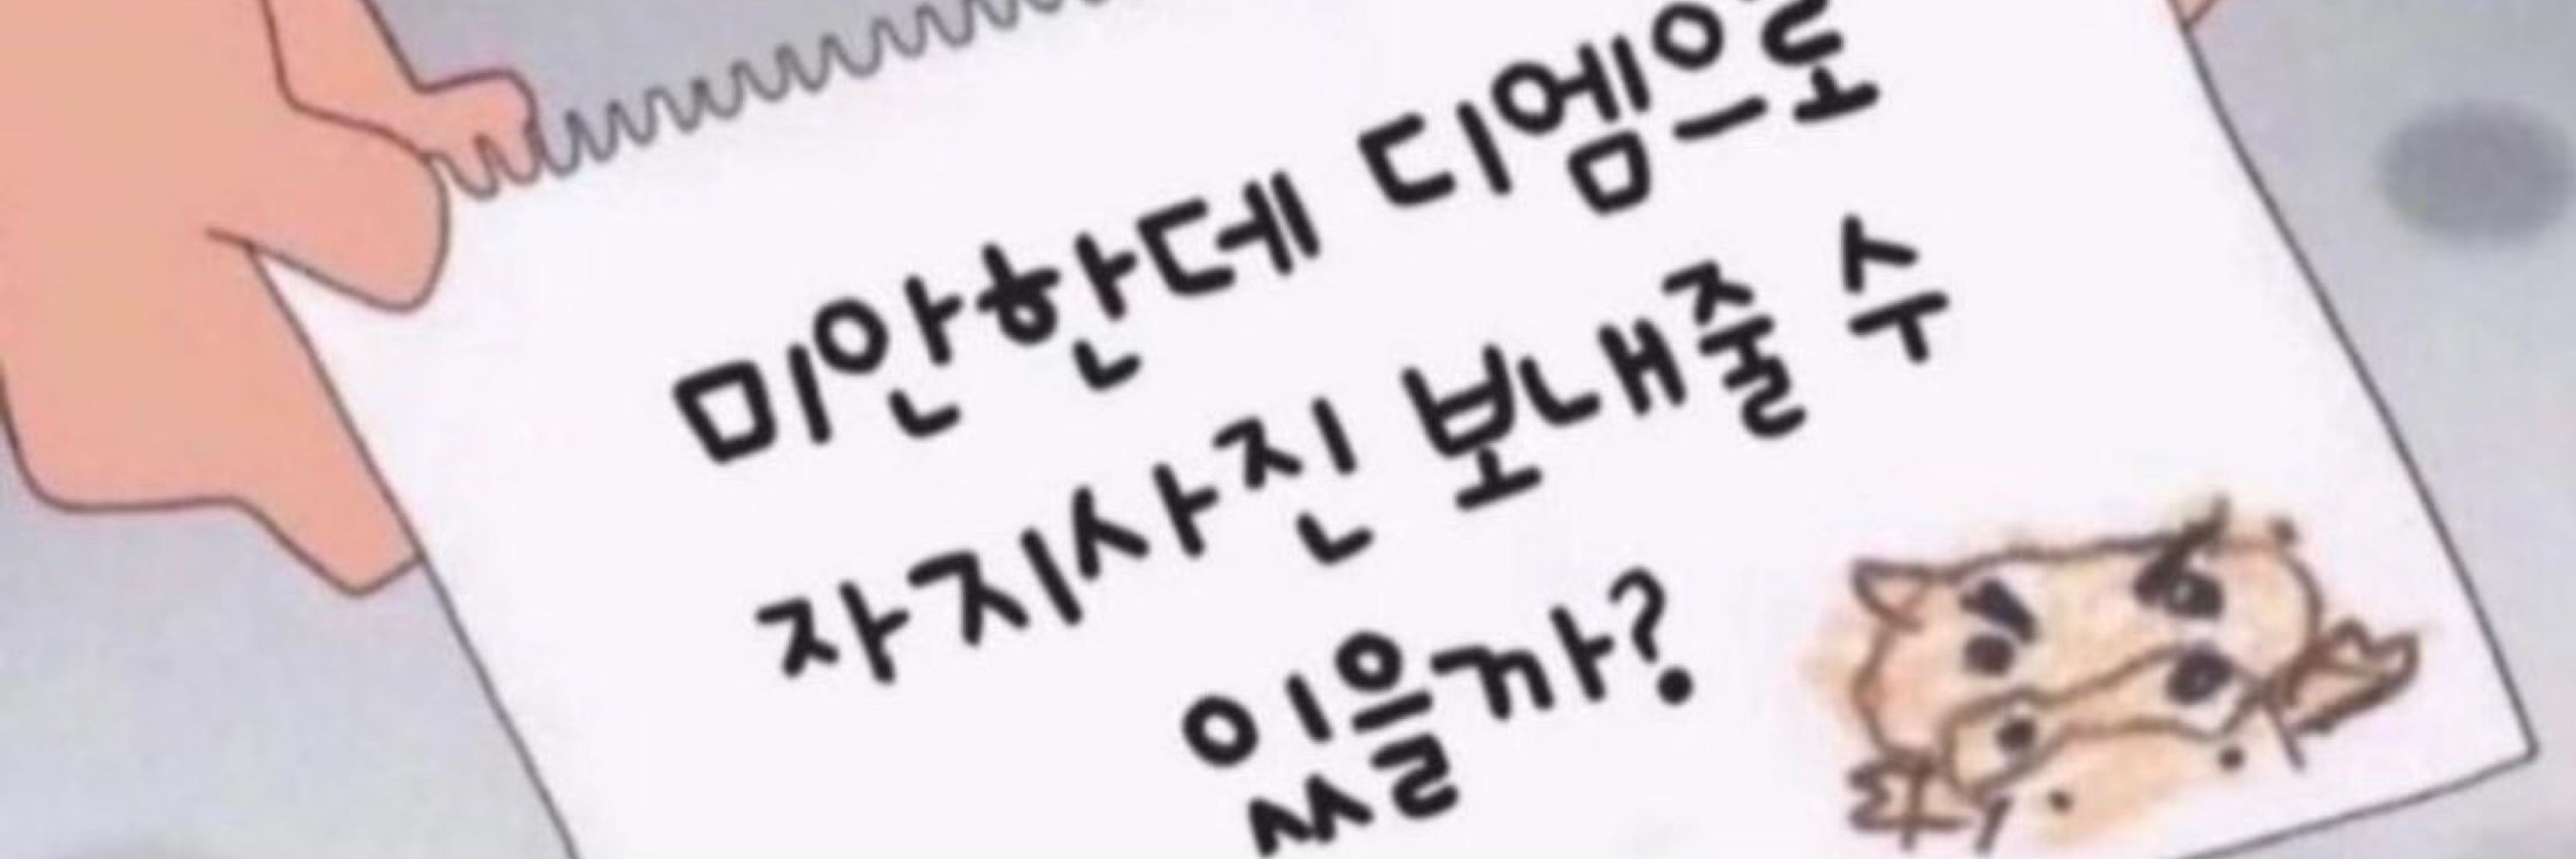 미안한데 디엠으로
자지사진 보내줄 수
있을까?